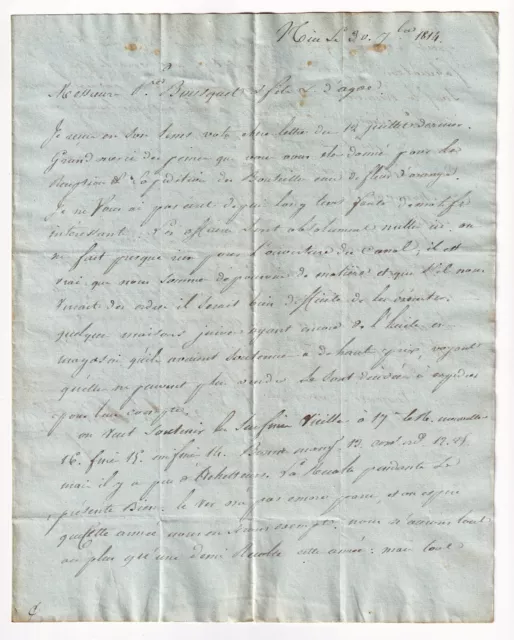 Nice le 30. 7bre 1814.
Messieurs Bousquet & fils & d'agar.
Je reçu en son tems votre chere lettre du 12 juillet dernier.
Grand merci des peines que vous vous etes donné pour la
Reception & expedition des Bouteilles eau de fleur d'orange.
Je ne Vous ai pas ecrit depuis long tems faute de motifs
interessant. Les affaires sont absolument nulles ici on
ne fait presque rien pour l'ouverture du Canal, il est
vrai que nous sommes depourvus de matiere et que s'il nous
venait des ordres il serait bien difficile de les executer.
quelques maisons juives ayant encore de l'huile en
magasin qu'ils avaient soutenue à de haut prix, voyant
qu'elles ne peuvent plus vendre se sont decidées à expedier
pour leur compte.
on veut Soutenir les Surfine Vieille à 17 
16. fine 15. mifine 14. 12.
mais il y a peu d'Acheteurs. La Recolte pendante se
présente Bien. le Ver n'a pas encore parru et on espere
que cette année nous en serons exempts. nous n'aurons tout
au plus qu'une demi Recolte cette année. mais tout